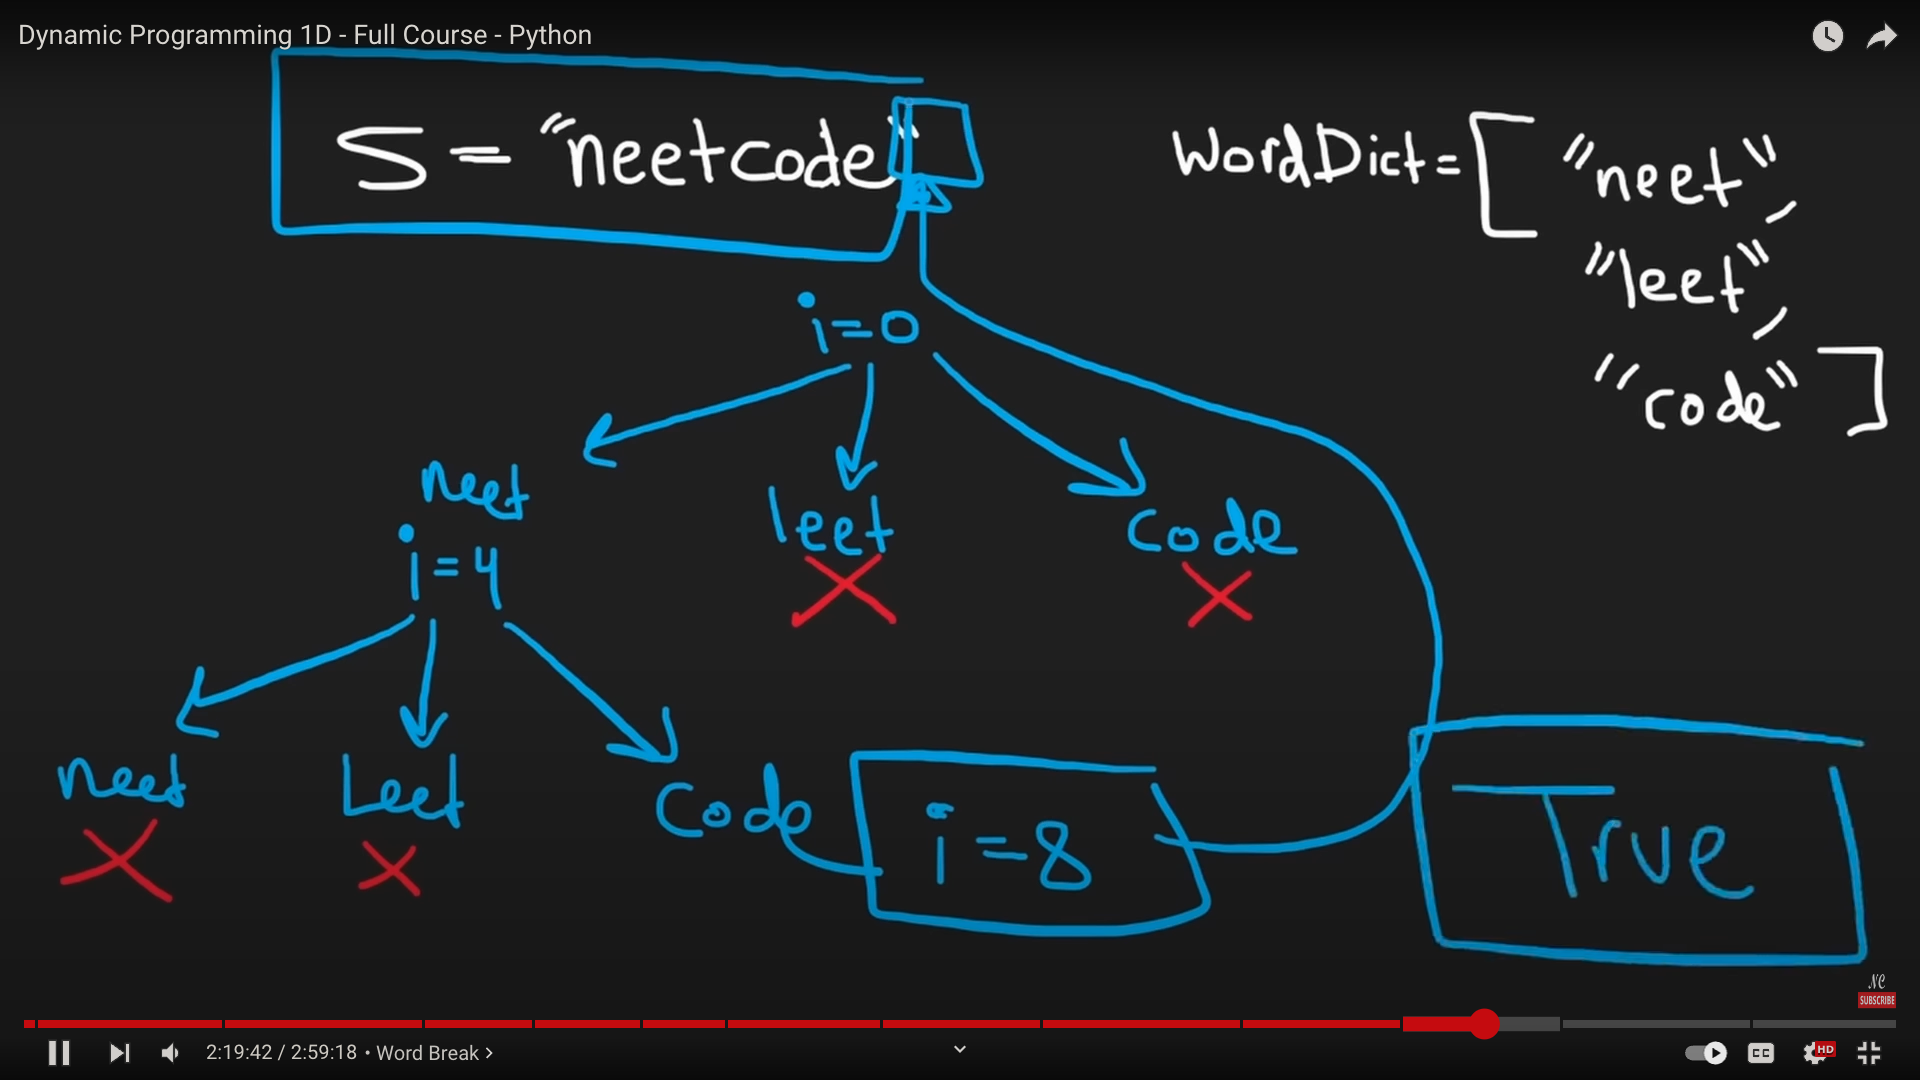 Dynamic Programming 1D - Full Course - Python
S = "neetcode"
WordDict = [ "neet",
"leet",
"code" ]
i=0
neet
leet
code
i=4
neet
Leet
Code
i=8
True
NC
SUBSCRIBE
2:19:42 / 2:59:18 • Word Break
CC
HD